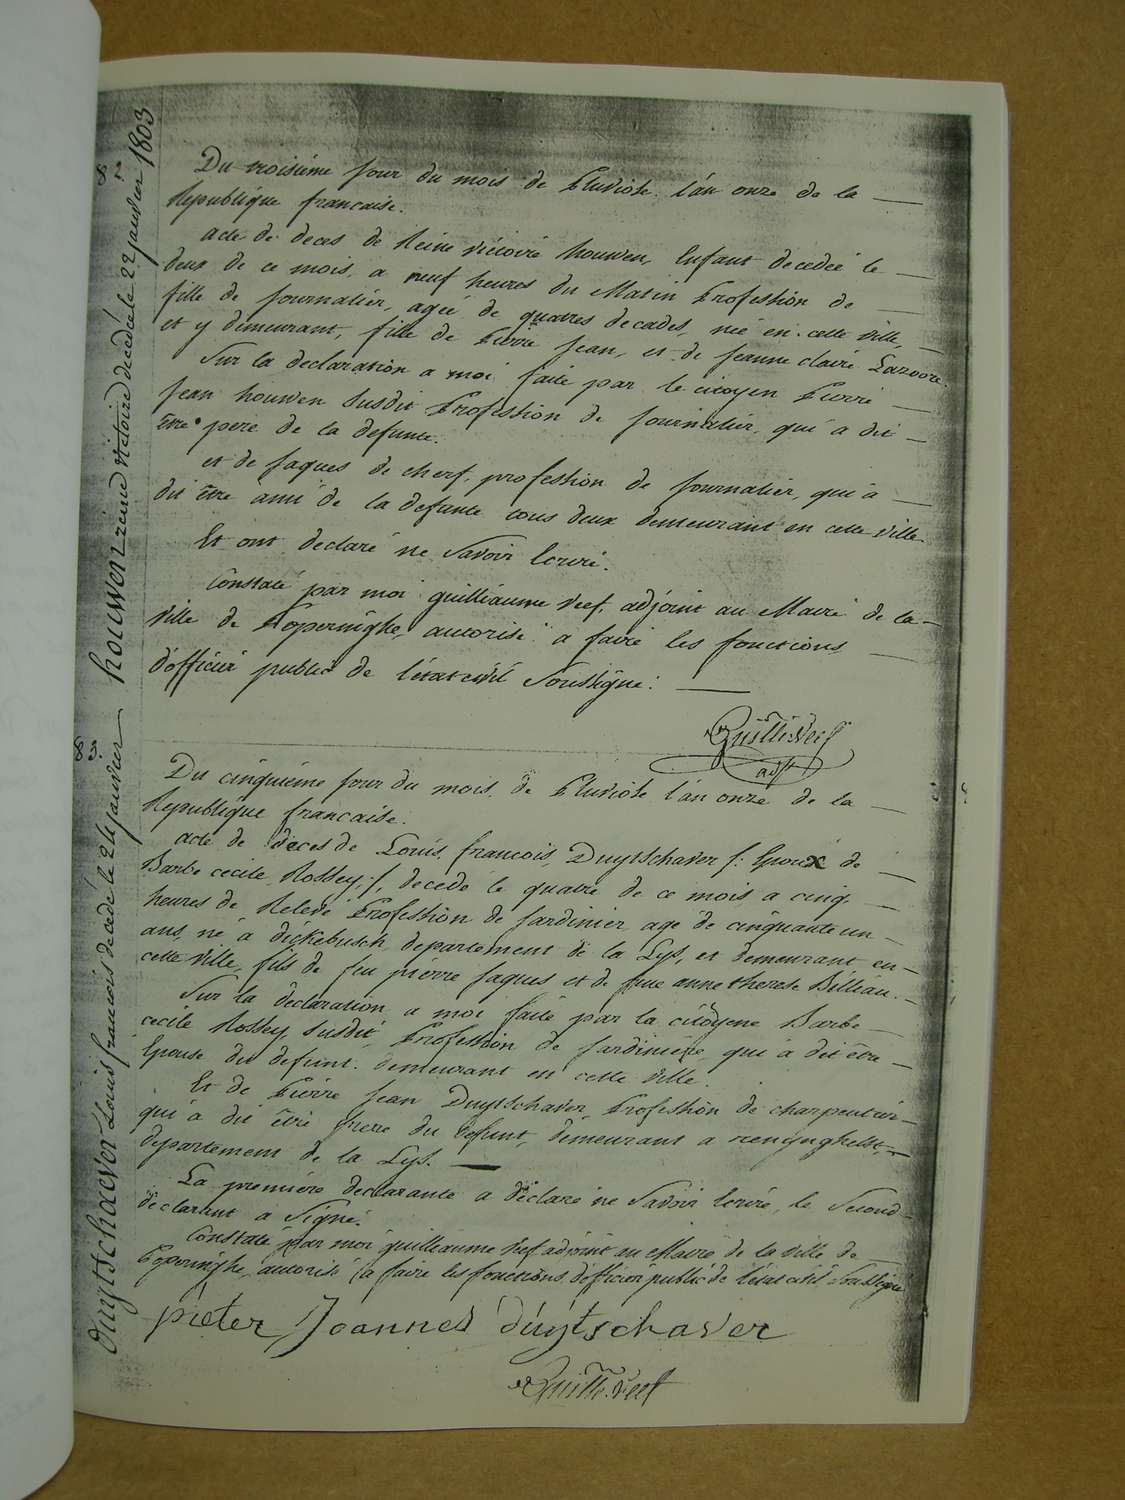 houwen reine victoire decedée le 22 janvier 1803
Du troisieme jour du mois de Pluviose l'an onze de la
Republique francaise.
acte de deces de Reine victoire houwen, Enfant decedeé le
deux de ce mois, a neuf heures du Matin Profession de
fille de journalier, ageé de quatres decades, neé en cette ville,
et y demeurant, fille de Pierre jean, et de jeanne claire
Sur la declaration a moi faite par le citoyen Pierre
jean houwen susdit Profession de journalier, qui a dit
être pere de la defunte.
et de jaques de cherf, profession de journalier, qui a
dit être ami de la defunte tous deux demeurant en cette ville.
Et ont declaré ne savoir Ecrire.
Constaté par moi guilliaume veef, adjoint au Maire de la
ville de Poperinghe, autorisé a faire les fonctions
d'officier public de l'état civil soussigné:
Guille Veef
adjt
83.
Duytschaever Louis francois decedé le 24 janvier
Du cinquieme jour du mois de Pluviose l'an onze de la
Republique francaise.
acte de deces de Louis, francois, Duytschaver /: Epoux de
Barbe cecile Rossey, :/, decedé le quatre de ce mois a cinq
heures de Relevé Profession de jardinier agé de cinquante un
ans, né a dickebusch departement de la Lys, et demeurant en
cette ville, fils de feu pierre jaques et de feue anne therese Billiau.
Sur la declaration a moi faite par la citoyene Barbe
cecile Rossey susdit, Profession de jardiniere, qui a dit être
Epouse du defunt. demeurant en cette ville.
Et de Pierre jean Duytschaver, Profession de charpentier
qui a dit être frere du defunt, demeurant a reninghelst,
departement de la Lys.
La premiere declarante a declaré ne savoir Ecrire, le second
declarant a signé.
Constaté par moi guilleaume veef adjoint au Maire de la ville de
Poperinghe, autorisé a faire les fonctions d'officier public de l'état civil soussigné
pieter Joannes duÿtschaver
Guille. Veef